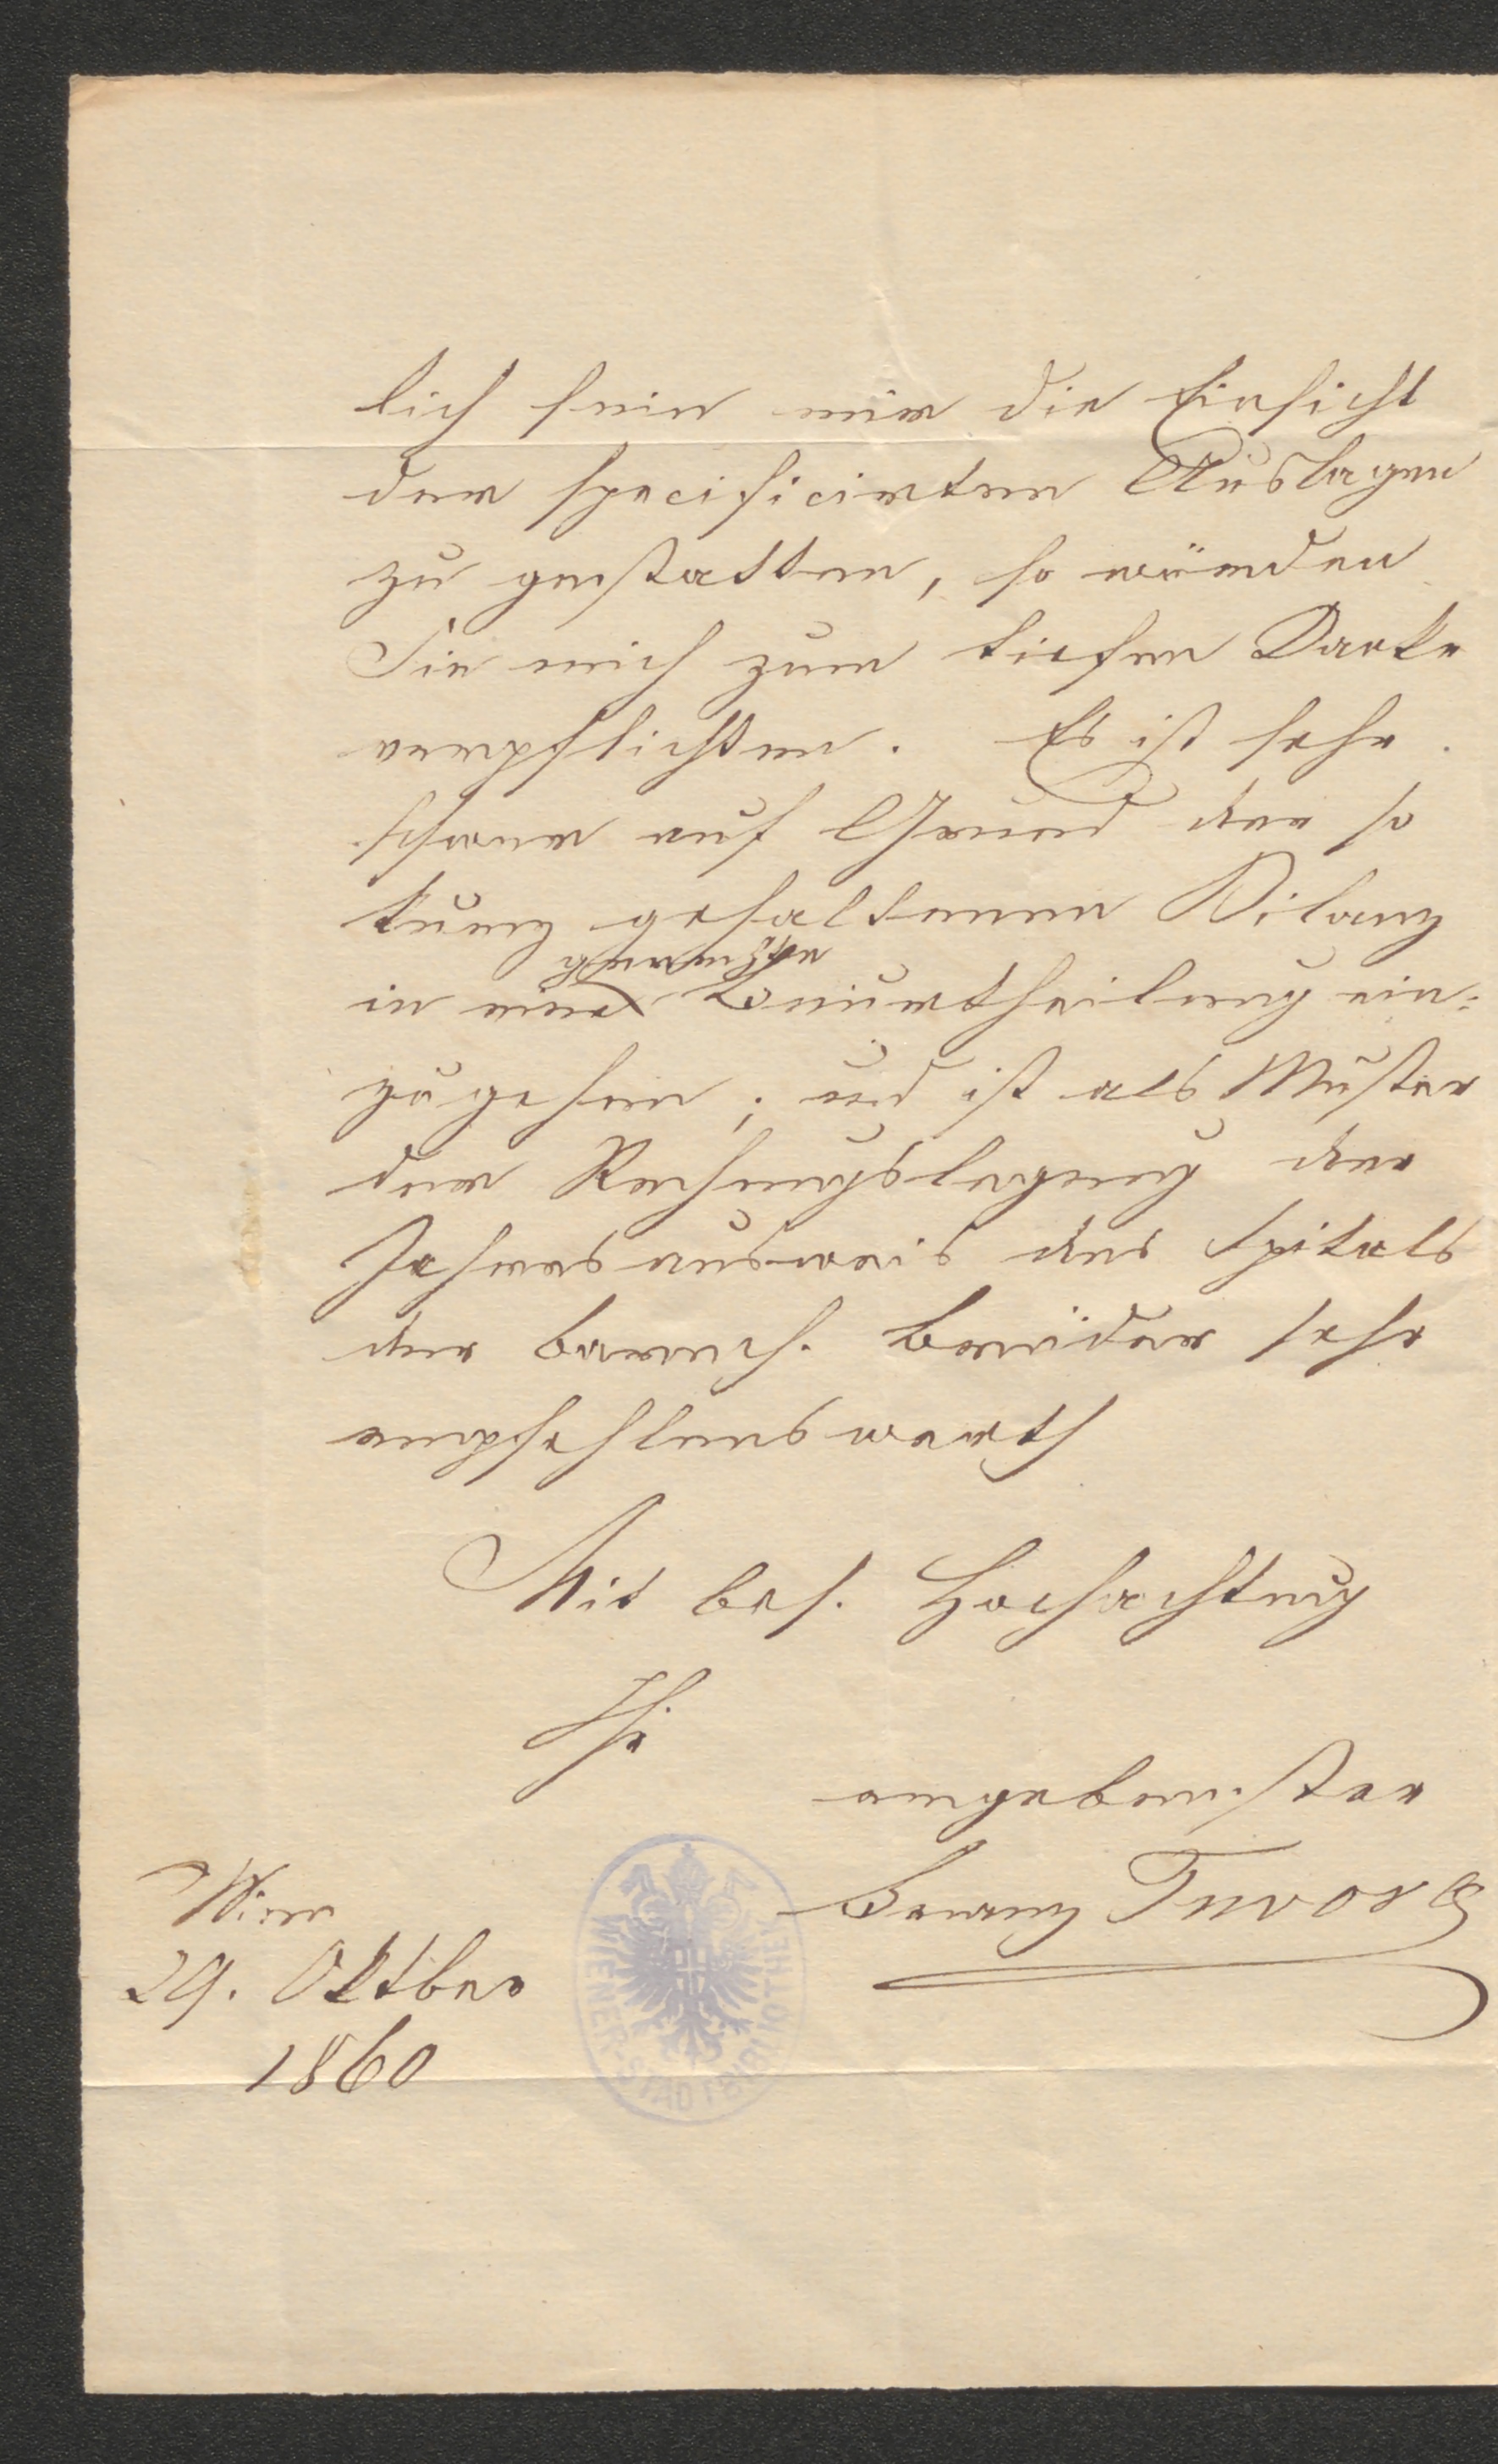 lich sein mir die Einsicht
der specificirten Auslagen
zu gestatten, so würden
Sie mich zum tiefen Danke
verpflichten. Es ist sehr
schwer auf Grund der so
kurz gehaltenen Bilanz
gerechte
in eine Beurtheilung ein-
zugehen; und ist als Muster
der Rechnungslegung der
Jahresausweis des Spitals
der barmh. Brüder sehr
empfehlenswerth
Mit bes. Hochachtung
Ihr
ergebenster
Franz
Wien
29. Oktber
1860
WIENER STADTBIBLIOTHEK